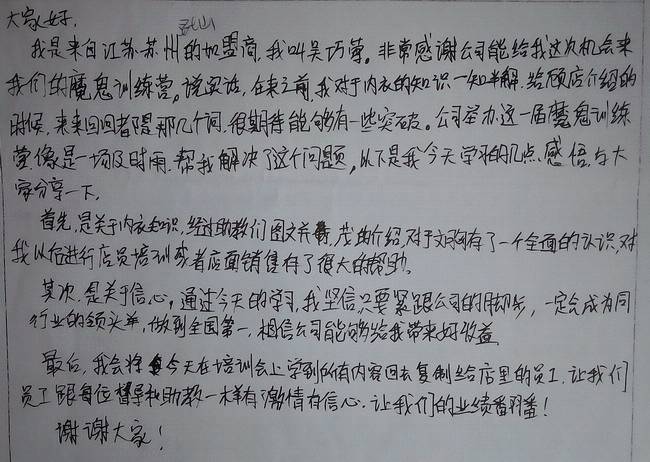 大家好,
昆山
我是来自江苏苏州的加盟商,我叫吴巧蓉。非常感谢公司能给我这次机会来
我们的魔鬼训练营。说实话,在来之前,我对于内衣的知识一知半解,给顾店介绍的
时候,来来回回都是那几个词,很期待能够有一些突破。公司举办这一届魔鬼训练
营,像是一场及时雨,帮我解决了这个问题,以下是我今天学习的几点感悟,与大
家分享一下,
首先,是关于内衣知识,经过助教们图文并茂的介绍,对于文胸有了一个全面的认识,对
我以后进行店员培训或者店面销售有了很大的帮助。
其次,是关于信心,通过今天的学习,我坚信只要紧跟公司的脚步,一定会成为同
行业的领头羊,做到全国第一,相信公司能够给我带来好收益
最后,我会将今天在培训会上学到所有内容回去复制给店里的员工,让我们
员工跟每位督导和助教一样有激情有信心,让我们的业绩番羽番!
谢谢大家!